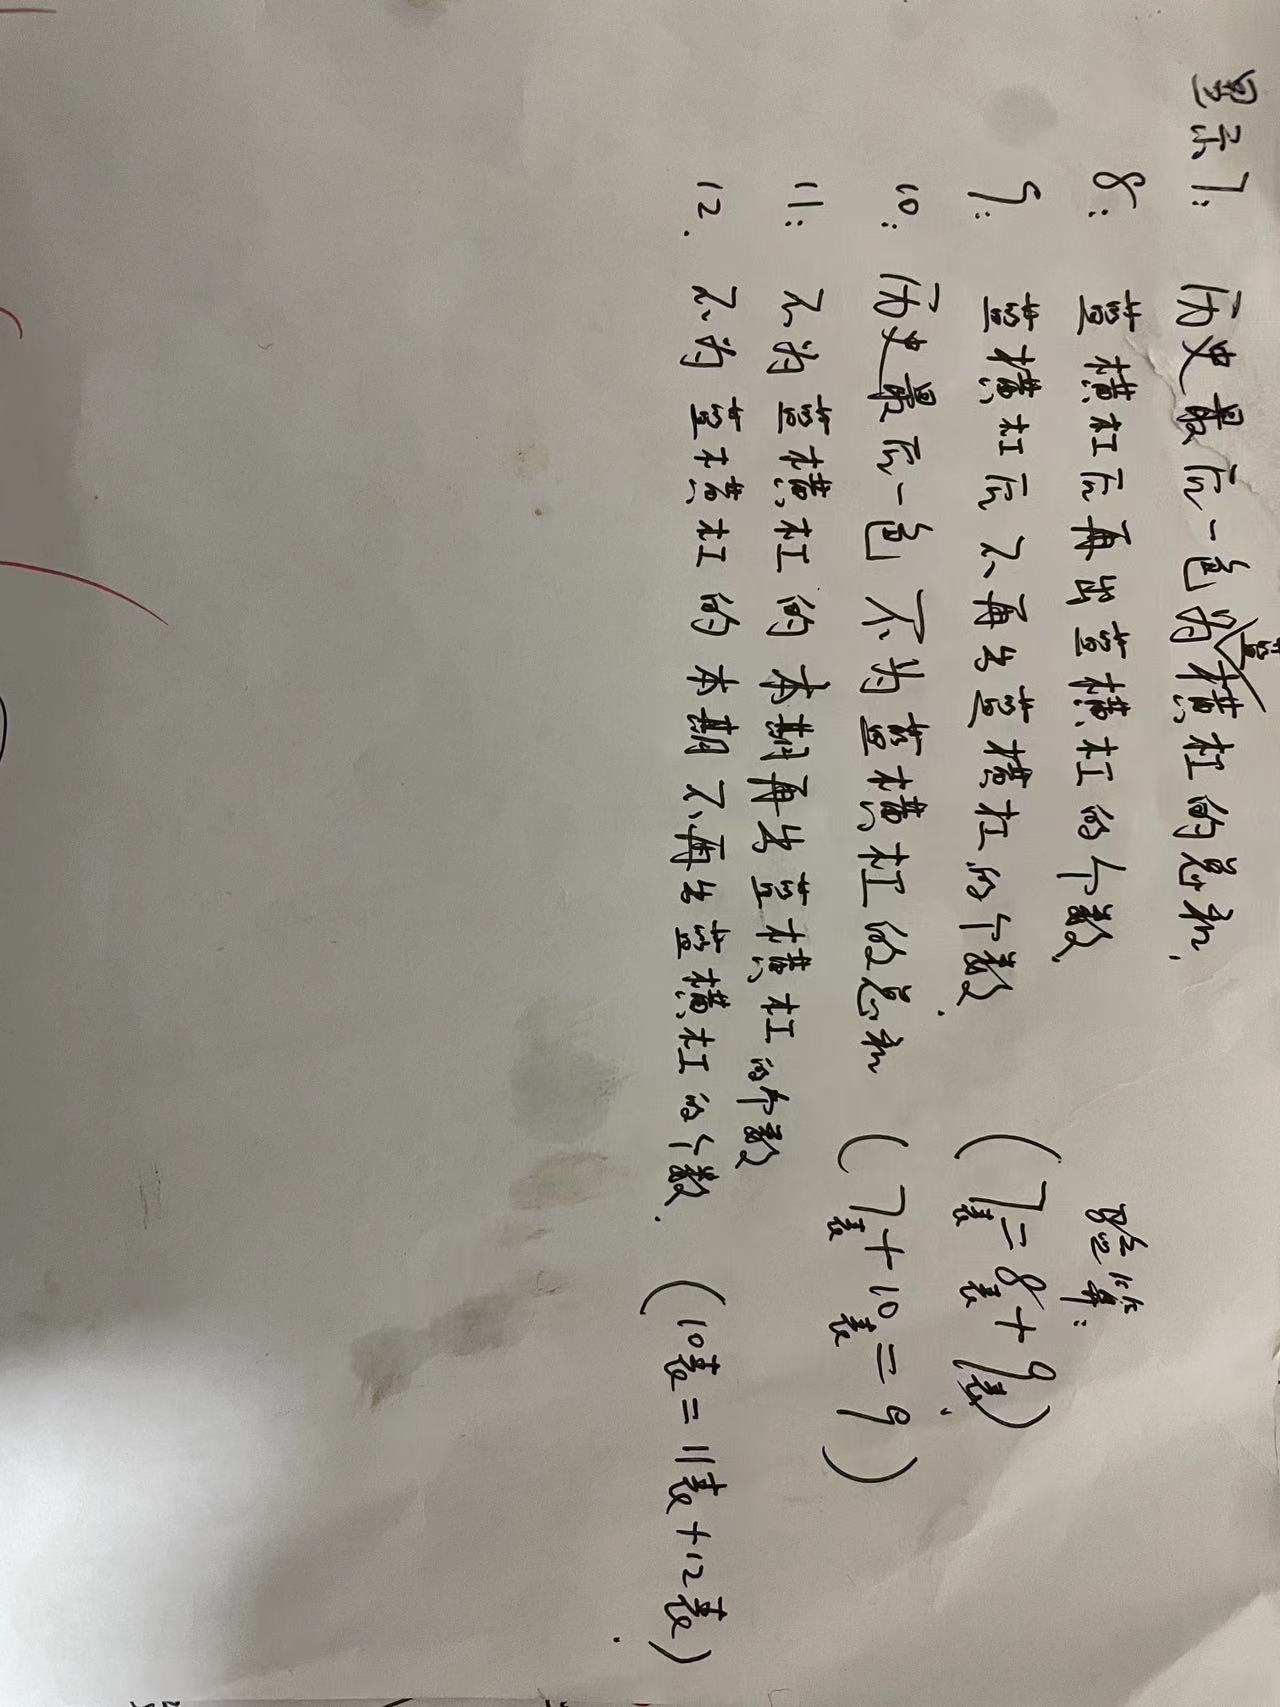 显示7: 历史最后一色为蓝横杠的总和,
8: 蓝横杠后再出蓝横杠的个数,
验算:
9: 蓝横杠后不再出蓝横杠的个数, (7表=8表+9表),
10: 历史最后一色不为蓝横杠的总和 (7表+10表=9)
11: 不为蓝横杠的本期再出蓝横杠的个数
12. 不为蓝横杠的本期不再出蓝横杠的个数. (10表=11表+12表).